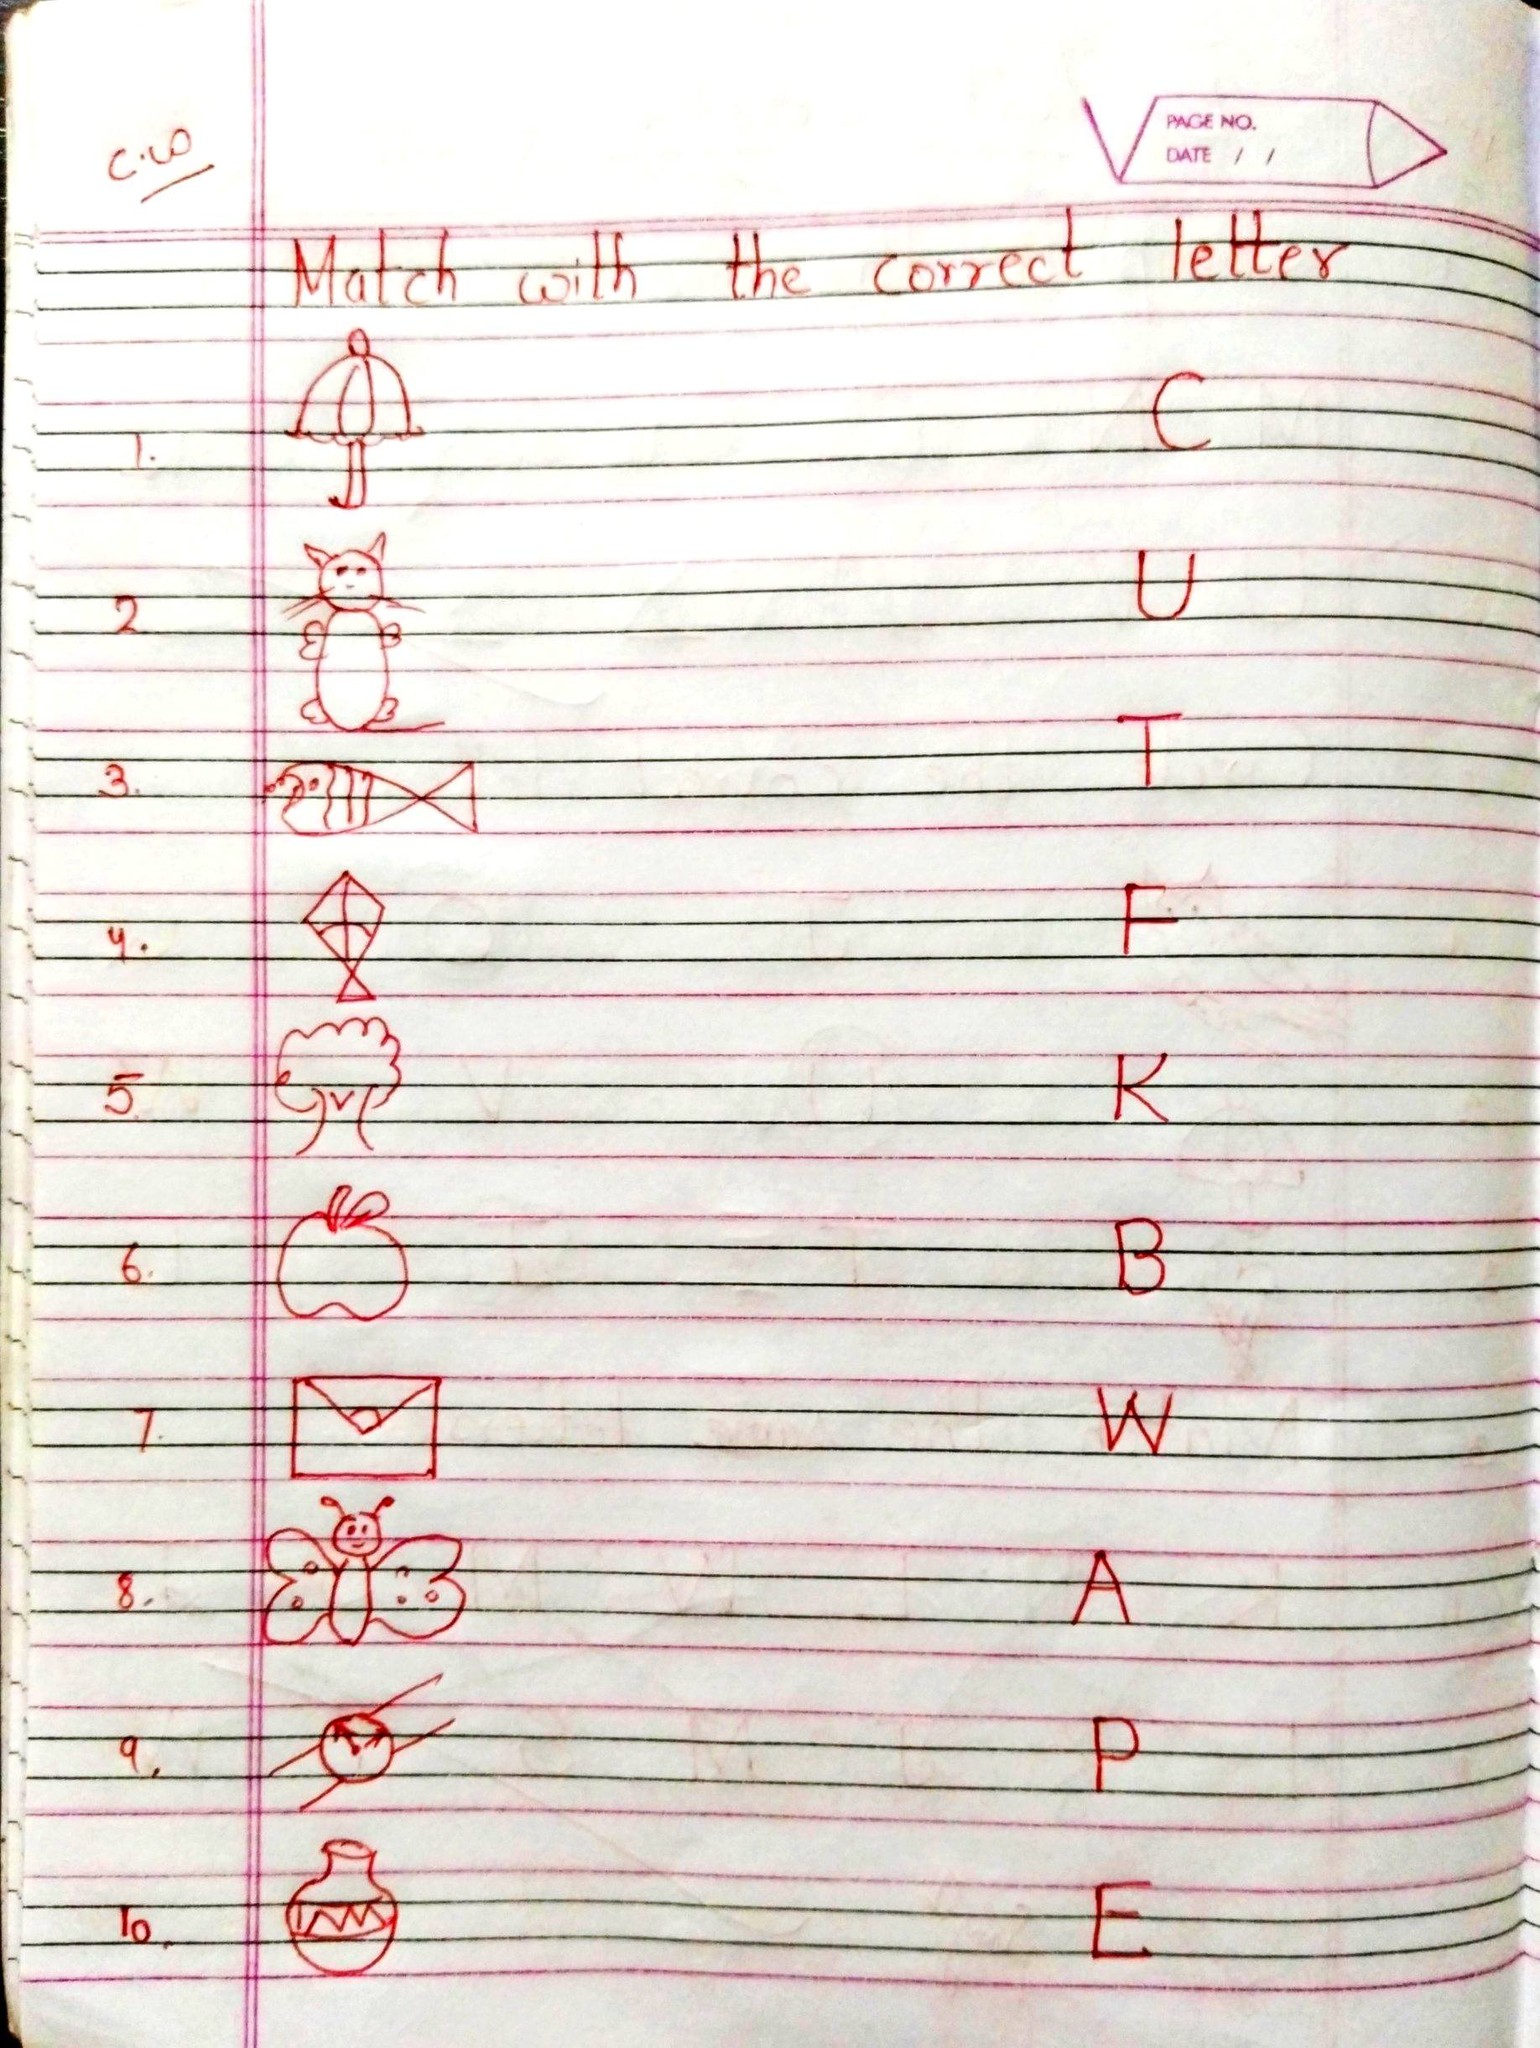 C.W
PAGE NO.
DATE / /
Match with the correct letter
1. C
2 U
3. T
4. F
5. K
6. B
7. W
8. A
9. P
10. E